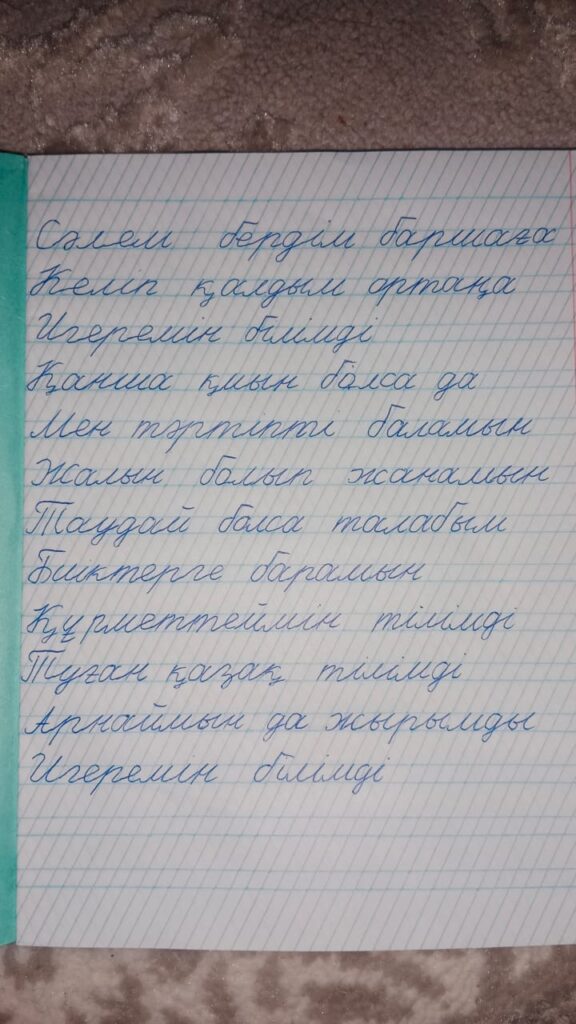 Сәлем бердім баршаға
Келіп қалдым ортаңа
Игеремін білімді
Қанша қиын болса да
Мен тәртіпті баламын
Жалын болып жанамын
Таудай болса талабым
Биіктерге барамын
Құрметтеймін тілімді
Туған қазақ тілімді
Арнаймын да жырымды
Игеремін білімді